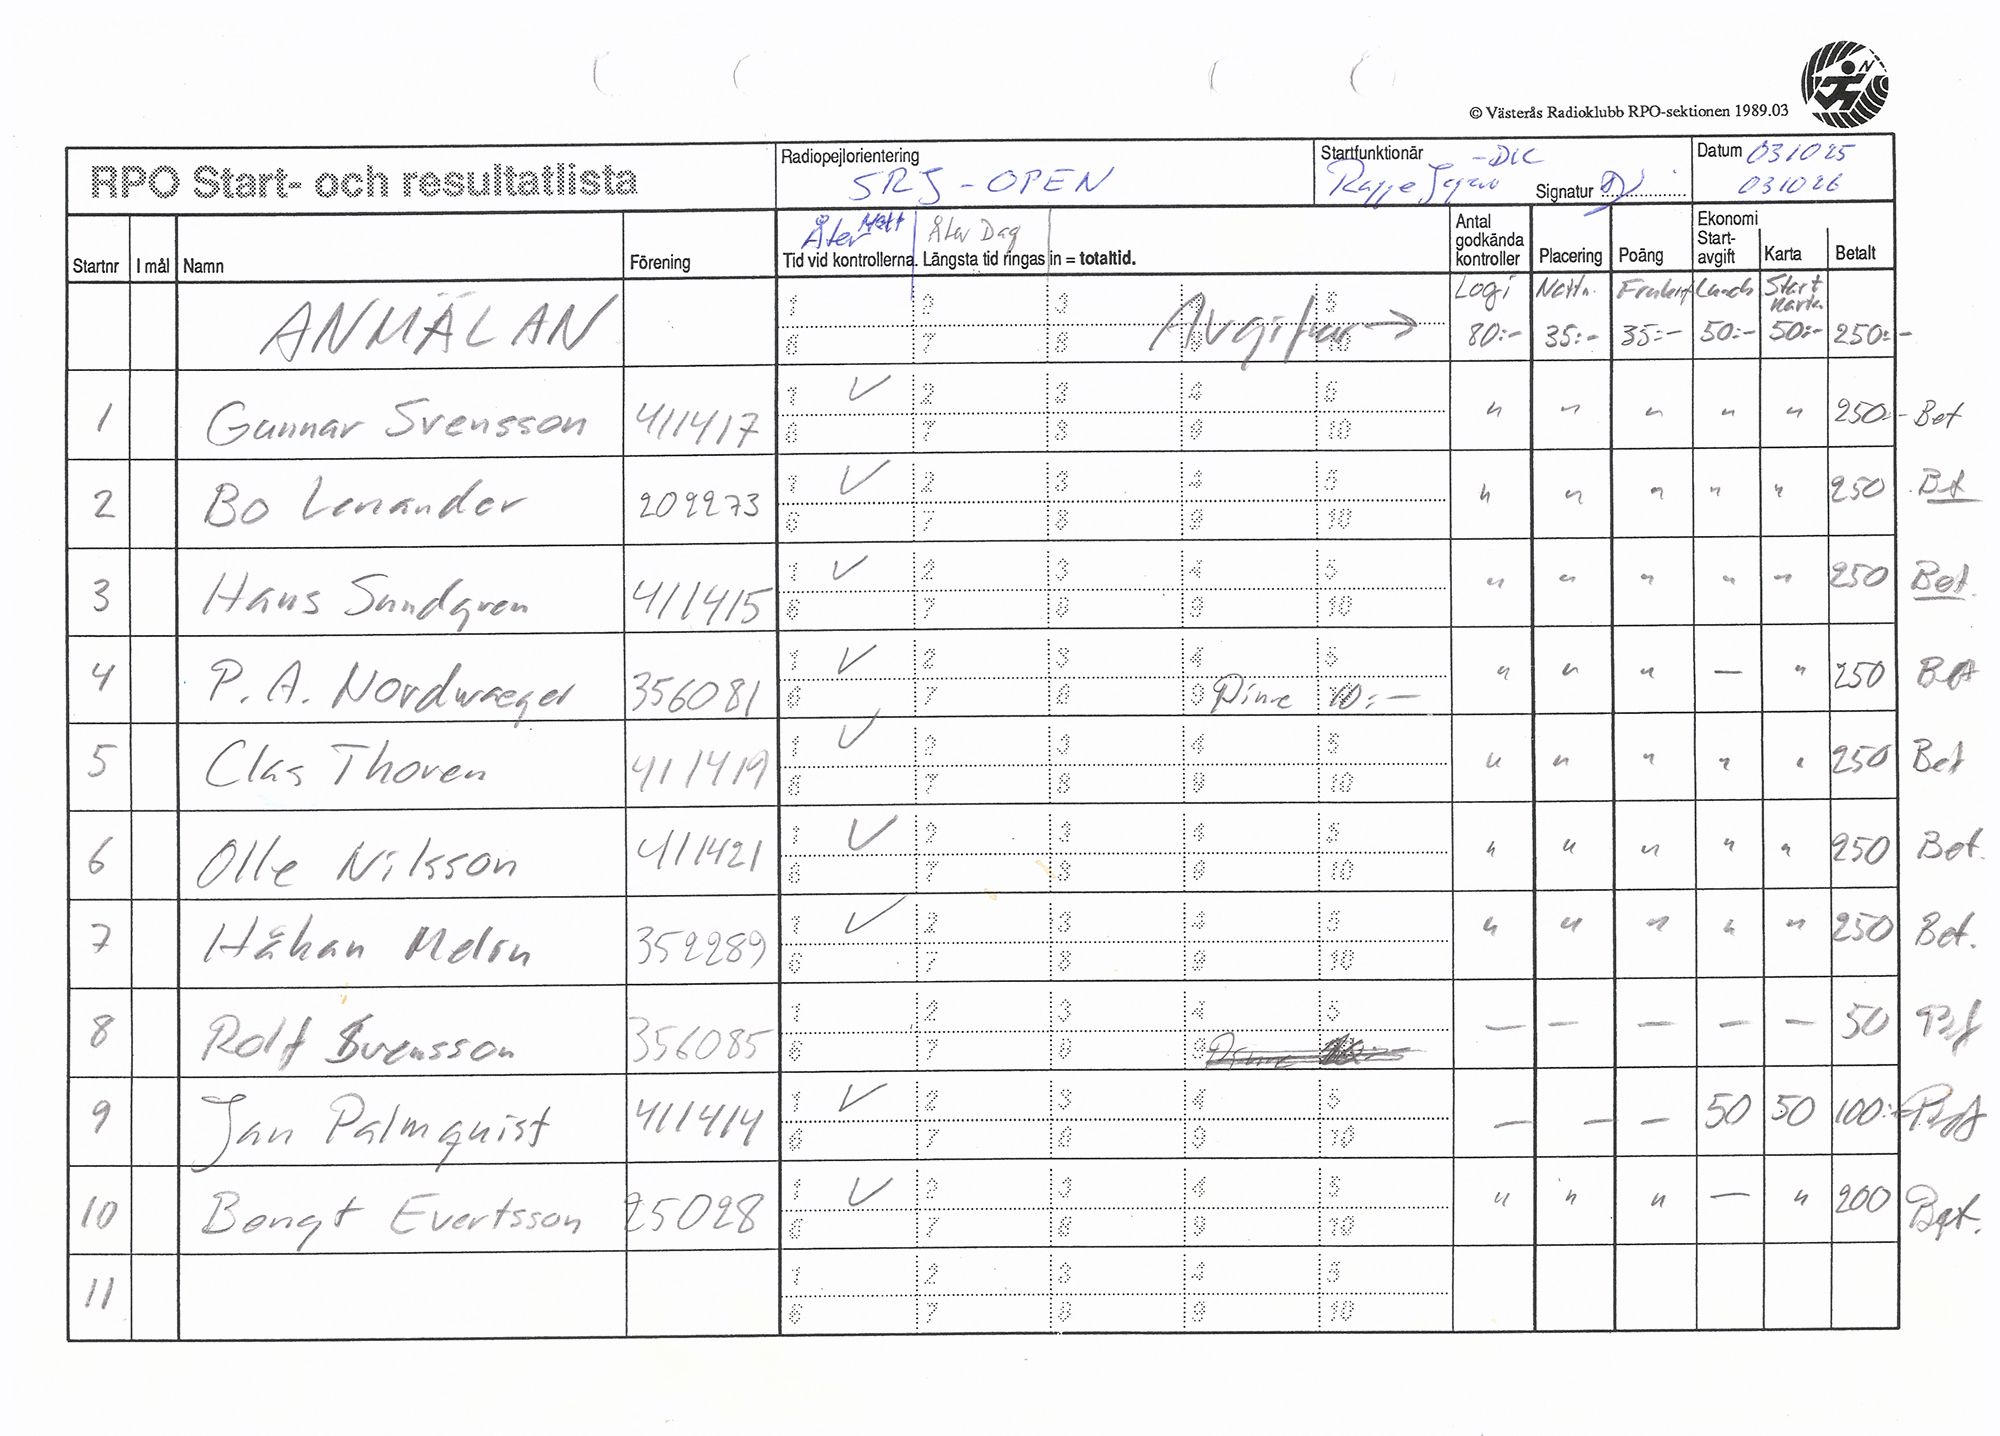 © Västerås Radioklubb RPO-sektionen 1989.03
RPO Start- och resultatlista
Radiopejlorientering
SRJ - OPEN
Startfunktionär -DIC
Signatur
Datum 031025
031026
Startnr I mål Namn Förening
Åter Natt Åter Dag
Tid vid kontrollerna. Längsta tid ringas in = totaltid.
Antal godkända kontroller Placering Poäng Ekonomi Start-avgift Karta Betalt
ANMÄLAN 1 2 3 5 6 7 8 Avgifter → Logi 80:- Nattm. 35:- Frukost 35:- Lunch 50:- Start Karta 50:- 250:-
1 Gunnar Svensson 411417 1 ✓ 2 3 4 5 6 7 8 9 10 " " " " " 250:- Bet
2 Bo Lenander 202273 1 ✓ 2 3 4 5 6 7 8 9 10 " " " " " 250 Bet
3 Hans Sundgren 411415 1 ✓ 2 3 4 5 6 7 8 9 10 " " " " " 250 Bet.
4 P. A. Nordwaeger 356081 1 ✓ 2 3 4 5 6 7 8 9 Pinne 10:- " " " — " 250 Bet
5 Clas Thoren 411419 1 ✓ 2 3 4 5 6 7 8 9 10 " " " " " 250 Bet
6 Olle Nilsson 411421 1 ✓ 2 3 4 5 6 7 8 9 10 " " " " " 250 Bet.
7 Håkan Melin 352289 1 ✓ 2 3 4 5 6 7 8 9 10 " " " " " 250 Bet.
8 Rolf Svensson 356085 1 2 3 4 5 6 7 8 9 — — — — — 50 Bet
9 Jan Palmquist 411414 1 ✓ 2 3 4 5 6 7 8 9 10 — — — 50 50 100:- Bet
10 Bengt Evertsson 25028 1 ✓ 2 3 4 5 6 7 8 9 10 " " " — " 200 Bet.
11 1 2 3 4 5 6 7 8 9 10